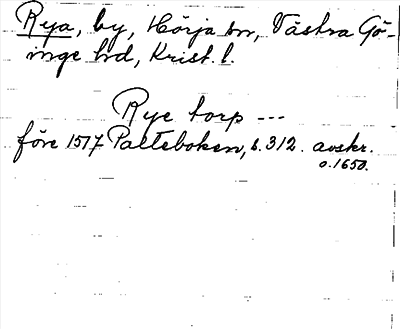 Rya, by, Hörja sn, Västra Gö-
inge hd, Krist. l.
Rye torp ---
före 1517 Palteboken, s. 312. avskr.
o. 1650.